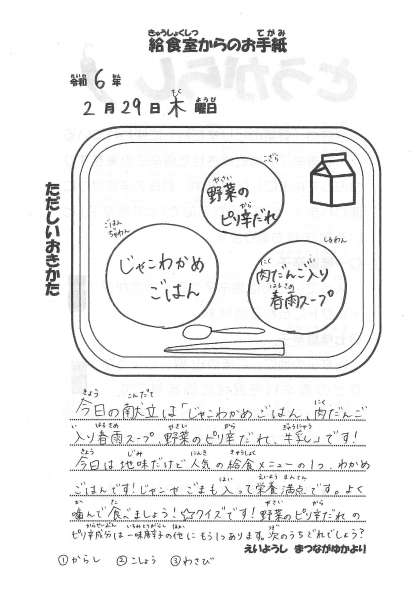 給食室からのお手紙
令和6年
2月29日木曜日
ただしいおきかた
こざら
野菜の
ピリ辛だれ
ごはん
ぢゃわん
じゃこわかめ
ごはん
しるわん
肉だんご入り
春雨スープ
今日の献立は「じゃこわかめごはん、肉だんご
入り春雨スープ、野菜のピリ辛だれ、牛乳」です!
今日は地味だけど人気の給食メニューの1つ、わかめ
ごはんです!じゃこやごまも入って栄養満点です。よく
噛んで食べましょう!☆クイズです!野菜のピリ辛だれの
ピリ辛成分は一味唐辛子の他にもう1つあります。次のうちどれでしょう?
えいようし まつながゆかより
①からし ②こしょう ③わさび